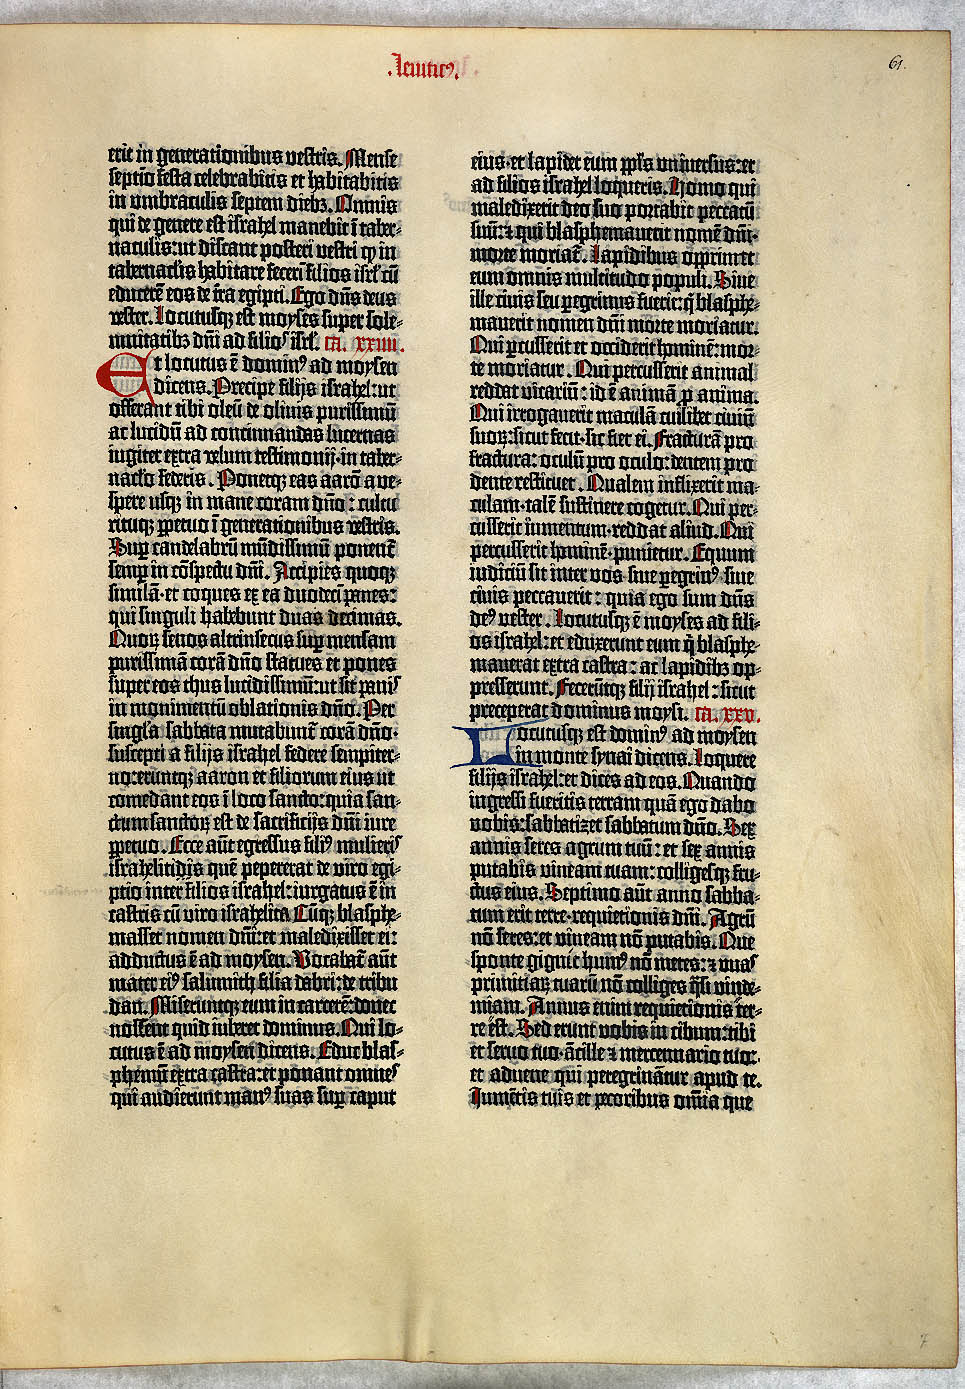 .Leuitic⁹.
61.
erit in generationibus vestris. Mense
septīo festa celebrabitis et habitabitis
in vmbraculis septem dieb₃. Omnis
qui de genere est israhel manebit ī taber-
naculis: ut discant posteri vestri qp in
tabernac̄lis habitare feceri filios isrl̄ cū
educerē eos de t̄ra egipti. Ego dn̄s deus
vester. Locutusq₃ est moyses super sole-
mnitatib₃ dn̄i ad filios isrl̄. ca. xxiiii.
Et locutus ē domin⁹ ad moysen
dicens. Precipe filijs israhel: ut
offerant tibi oleū de oliuis purissimū
ac lucidū ad concinnandas lucernas
iugiter extra velum testimonij · in taber-
nac̄lo federis. Ponetq₃ eas aarō a ve-
spere usq₃ in mane coram dn̄o: cultu
rituq₃ ꝑpetuo ī generationibus vestris.
Suꝑ candelabrū mūdissimū ponent̄
semꝑ in cōspectu dn̄i. Accipies quoq₃
similā · et coques ex ea duodecī panes:
qui singuli habebunt duas decimas.
Quoꝝ senos altrinsecus suꝑ mensam
purissimā corā dn̄o statues et pones
super eos thus lucidissimū: ut sit panis
in monimentū oblationis dn̄o. Per
singl̄a sabbata mutabunt̄ corā dn̄o ·
suscepti a filijs israhel federe sempiter-
no: eruntq₃ aaron et filiorum eius ut
comedant eos ī loco sancto: quia san-
ctum sanctoꝝ est de sacrificijs dn̄i iure
ꝑpetuo. Ecce aūt egressus fili⁹ mulieris
israhelitidis quē pepererat de viro egi-
ptio inter filios israhel: iurgatus ē in
castris cū viro israhelita. Cūq₃ blasphe-
masset nomen dn̄i: et maledixisset ei:
adductus ē ad moysen. Vocabat̄ aūt
mater ei⁹ salumith filia dabri: de tribu
dan. Miseruntq₃ eum in carcerē: donec
nossent quid iuberet dominus. Qui lo-
cutus ē ad moysen dicens. Educ blas-
phemū extra castra: et ponant omnes
qui audierunt man⁹ suas suꝑ caput
eius · et lapidet eum ppl̄s vniuersus: et
ad filios israhel loqueris. Homo qui
maledixerit deo suo portabit peccatū
suū: ⁊ qui blasphemauerit nomē dn̄i ·
morte moriat̄. Lapidibus opprimet
eum omnis multitudo populi. Siue
ille ciuis seu peregrinus fuerit: q̄ blasphe-
mauerit nomen dn̄i morte moriatur.
Qui ꝑcusserit et occiderit hominē: mor-
te moriatur. Qui percusserit animal
reddat vicariū: id ē animā ꝓ anima.
Qui irrogauerit maculā cuilibet ciuiū
suoꝝ: sicut fecit · sic fiet ei. Fracturā pro
fractura: oculū pro oculo: dentem pro
dente restituet. Qualem inflixerit ma-
culam · talē sustinere cogetur. Qui per-
cusserit iumentum · reddat aliud. Qui
percusserit hominē · punietur. Equum
iudiciū sit inter vos · siue ꝑegrin⁹ · siue
ciuis peccauerit: quia ego sum dn̄s
de⁹ vester. Locutusq₃ ē moyses ad fili-
os israhel: et eduxerunt eum q̄ blasphe-
mauerat extra castra: ac lapidib₃ op-
presserunt. Fecerūtq₃ filij israhel: sicut
preceperat dominus moysi. ca. xxv.
Locutusq₃ est domin⁹ ad moysen
in monte synai dicens. Loquere
filijs israhel: et dices ad eos. Quando
ingressi fueritis terram quā ego dabo
vobis: sabbatizet sabbatum dn̄o. Sex
annis seres agrum tuū: et sex annis
putabis vineam tuam: colligesq₃ fru-
ctus eius. Septimo aūt anno sabba-
tum erit terre · requietionis dn̄i. Agrū
nō seres: et vineam nō putabis. Que
sponte gignit hum⁹ nō metes: ⁊ vuas
primitiaꝝ tuarū nō colliges q̄si vinde-
miam. Annus enim requietionis ter-
re est. Sed erunt vobis in cibum: tibi
et seruo tuo · ācille ⁊ mercennario tuo:
et aduene qui peregrinātur apud te.
Iumētis tuis et pecoribus omīa que
7